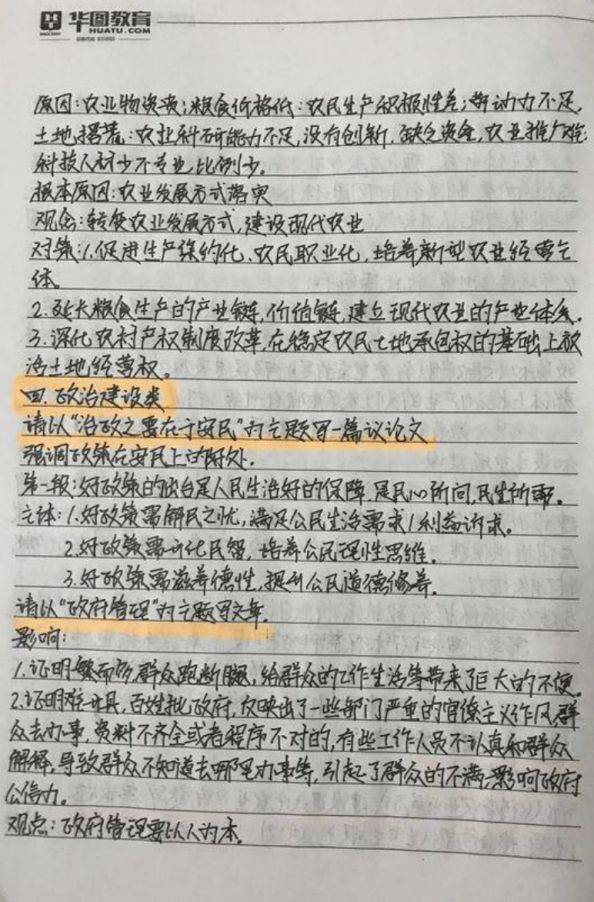 华图教育
HUATU.COM
原因:农业物资贵;粮食价格低:农民生产积极性差;劳动力不足,
土地撂荒:农业科研能力不足,没有创新,缺乏资金,农业推广难;
科技人材少不专业,比例少。
根本原因:农业发展方式落实
观念:转变农业发展方式,建设现代农业
对策:1.促进生产集约化、农民职业化,培养新型农业经营主
体。
2.延长粮食生产的产业链,价值链,建立现代农业的产业体系。
3.深化农村产权制度改革,在稳定农民土地承包权的基础上放
活土地经营权。
四.政治建设类
请以“治政之要在于安民”为主题写一篇议论文
强调政策在安民上的好处。
第一段:好政策的出台是人民生活好的保障,是民心所向,民生所要。
主体:1.好政策需解民之忧,满足公民生活需求/利益诉求。
2.好政策需开化民智,培养公民理性思维。
3.好政策需滋养德性,提升公民道德修养。
请以“政府管理”为主题写文章.
影响:
1.证明繁而多,群众跑断腿,给群众的工作生活等带来了巨大的不便。
2.证明难开具,百姓批政府,反映出了一些部门严重的官僚主义作风,群
众去办事,资料不齐全或者程序不对的,有些工作人员不认真和群众
解释,导致群众不知道去哪里办事等,引起了群众的不满,影响政府
公信力。
观点:政府管理要以人为本.